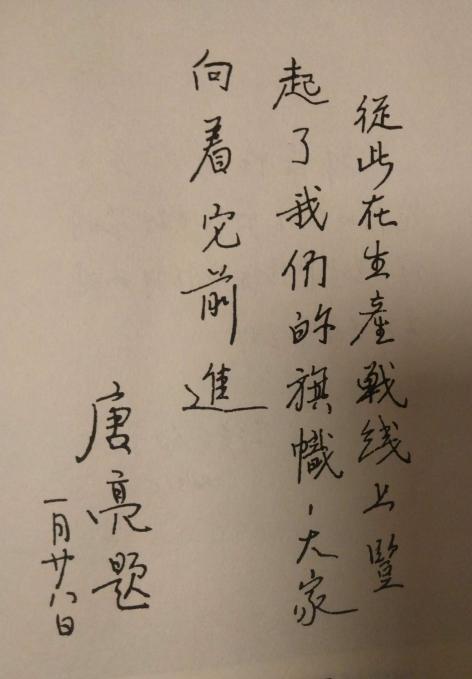 從此在生產戰线上豎
起了我们的旗幟，大家
向着它前進
唐亮题
一月廿八日